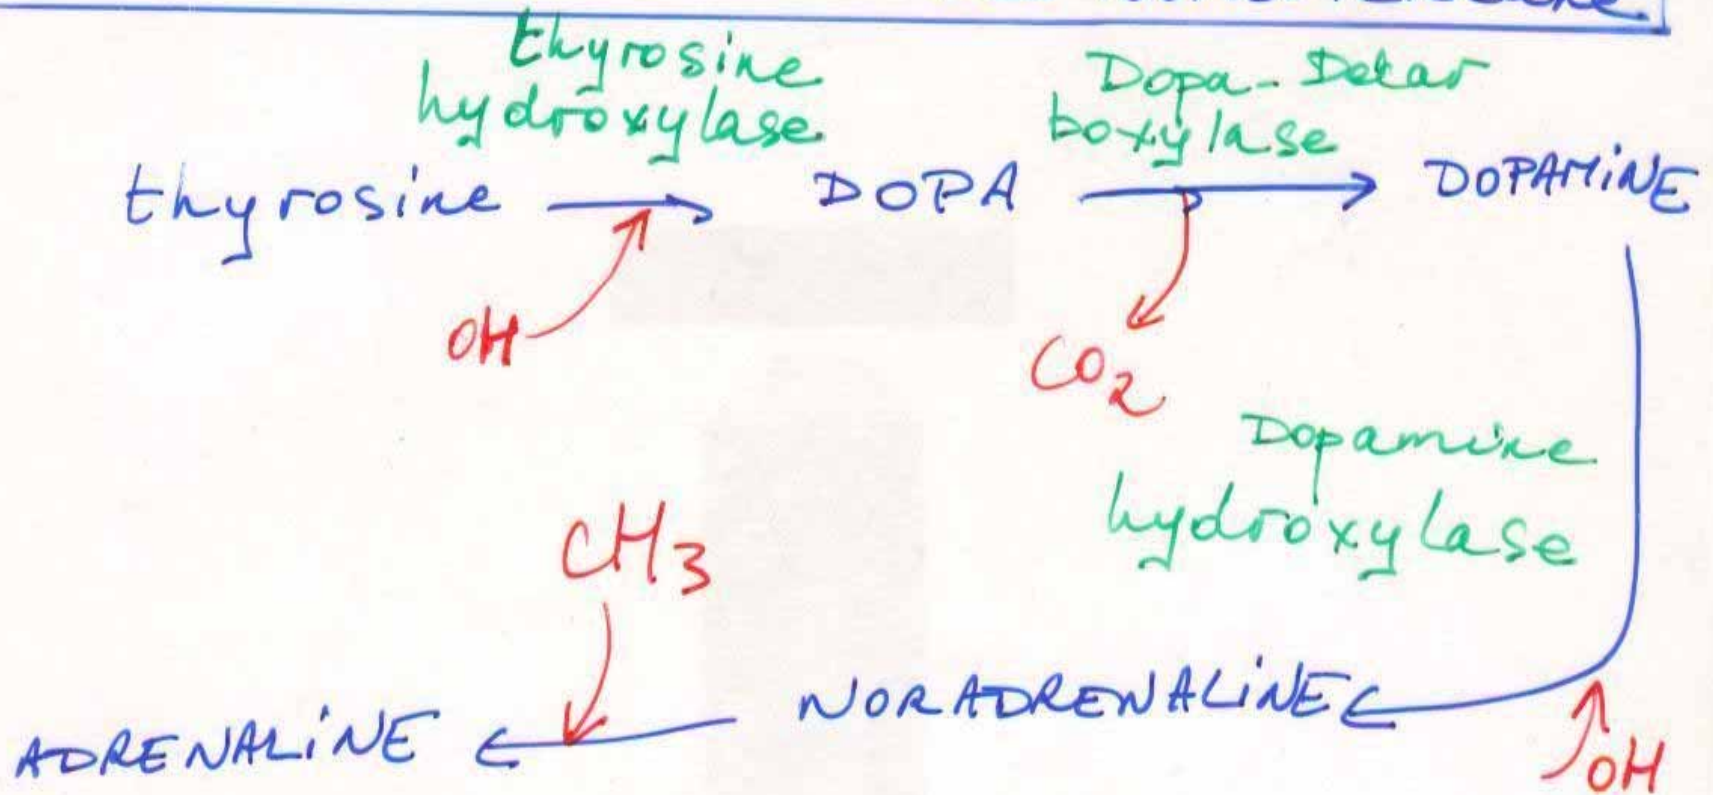 thyrosine
hydroxylase
Dopa-Decar
boxylase
thyrosine → DOPA → DOPAMINE
OH
CO2
Dopamine
hydroxylase
CH3
ADRENALINE ← NORADRENALINE ←
OH